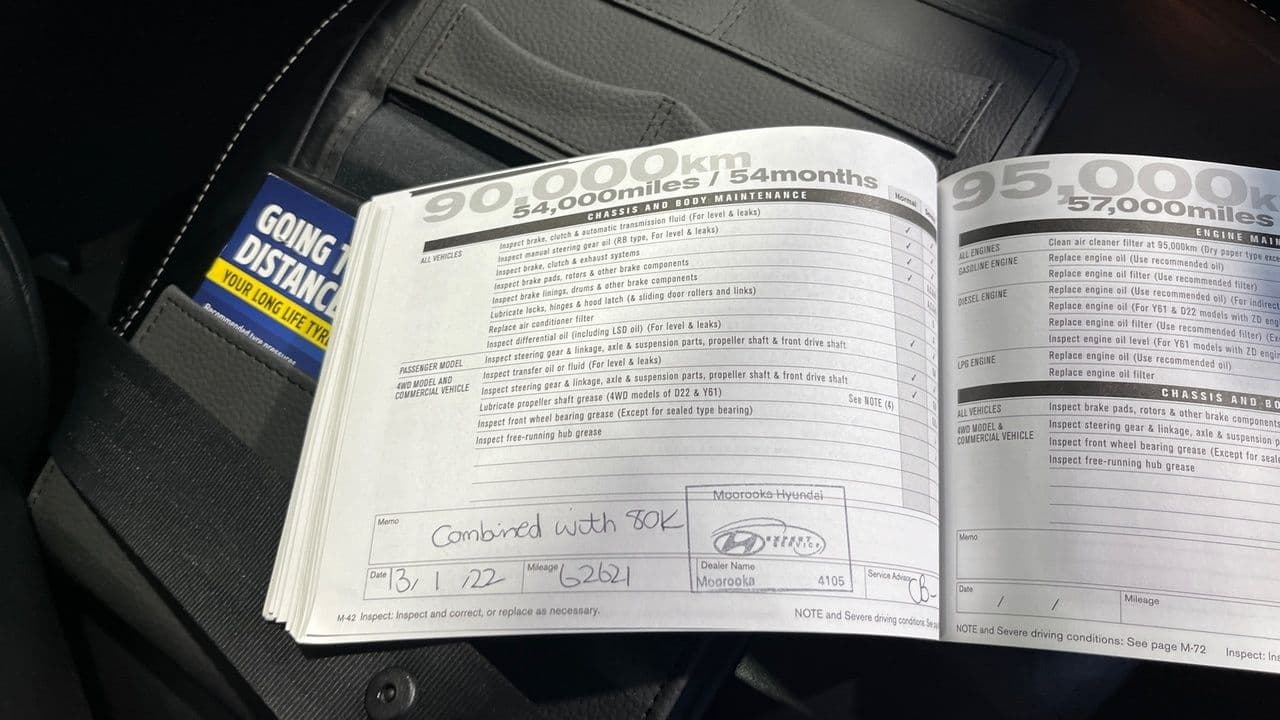 GOING T
DISTANC
YOUR LONG LIFE TYR
Recommended tyre pressures
90,000km
54,000miles / 54months
CHASSIS AND BODY MAINTENANCE
Normal
ALL VEHICLES
Inspect brake, clutch & automatic transmission fluid (For level & leaks)
Inspect manual steering gear oil (RB type, For level & leaks)
Inspect brake, clutch & exhaust systems
Inspect brake pads, rotors & other brake components
Inspect brake linings, drums & other brake components
Lubricate locks, hinges & hood latch (& sliding door rollers and links)
Replace air conditioner filter
Inspect differential oil (including LSD oil) (For level & leaks)
PASSENGER MODEL
Inspect steering gear & linkage, axle & suspension parts, propeller shaft & front drive shaft
4WD MODEL AND
COMMERCIAL VEHICLE
Inspect transfer oil or fluid (For level & leaks)
Inspect steering gear & linkage, axle & suspension parts, propeller shaft & front drive shaft
Lubricate propeller shaft grease (4WD models of D22 & Y61)
Inspect front wheel bearing grease (Except for sealed type bearing) See NOTE (4)
Inspect free-running hub grease
Memo
Combined with 80K
Moorooka Hyundai
EXPERT
SERVICE
Date 13/1/22
Mileage 62621
Dealer Name
Moorooka 4105
Service Advisor
CB-
M-42 Inspect: Inspect and correct, or replace as necessary.
NOTE and Severe driving conditions: See pa
95,000k
57,000miles
ENGINE MAIN
ALL ENGINES
Clean air cleaner filter at 95,000km (Dry paper type exce
GASOLINE ENGINE
Replace engine oil (Use recommended oil)
Replace engine oil filter (Use recommended filter)
DIESEL ENGINE
Replace engine oil (Use recommended oil) (For indirect
Replace engine oil (For Y61 & D22 models with ZD eng
Replace engine oil filter (Use recommended filter) (Ex
Inspect engine oil level (For Y61 models with ZD engi
LPG ENGINE
Replace engine oil (Use recommended oil)
Replace engine oil filter
CHASSIS AND BO
ALL VEHICLES
Inspect brake pads, rotors & other brake components
4WD MODEL &
COMMERCIAL VEHICLE
Inspect steering gear & linkage, axle & suspension p
Inspect front wheel bearing grease (Except for seale
Inspect free-running hub grease
Memo
Date / /
Mileage
NOTE and Severe driving conditions: See page M-72
Inspect: Ins